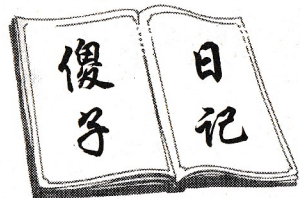 傻子
日记